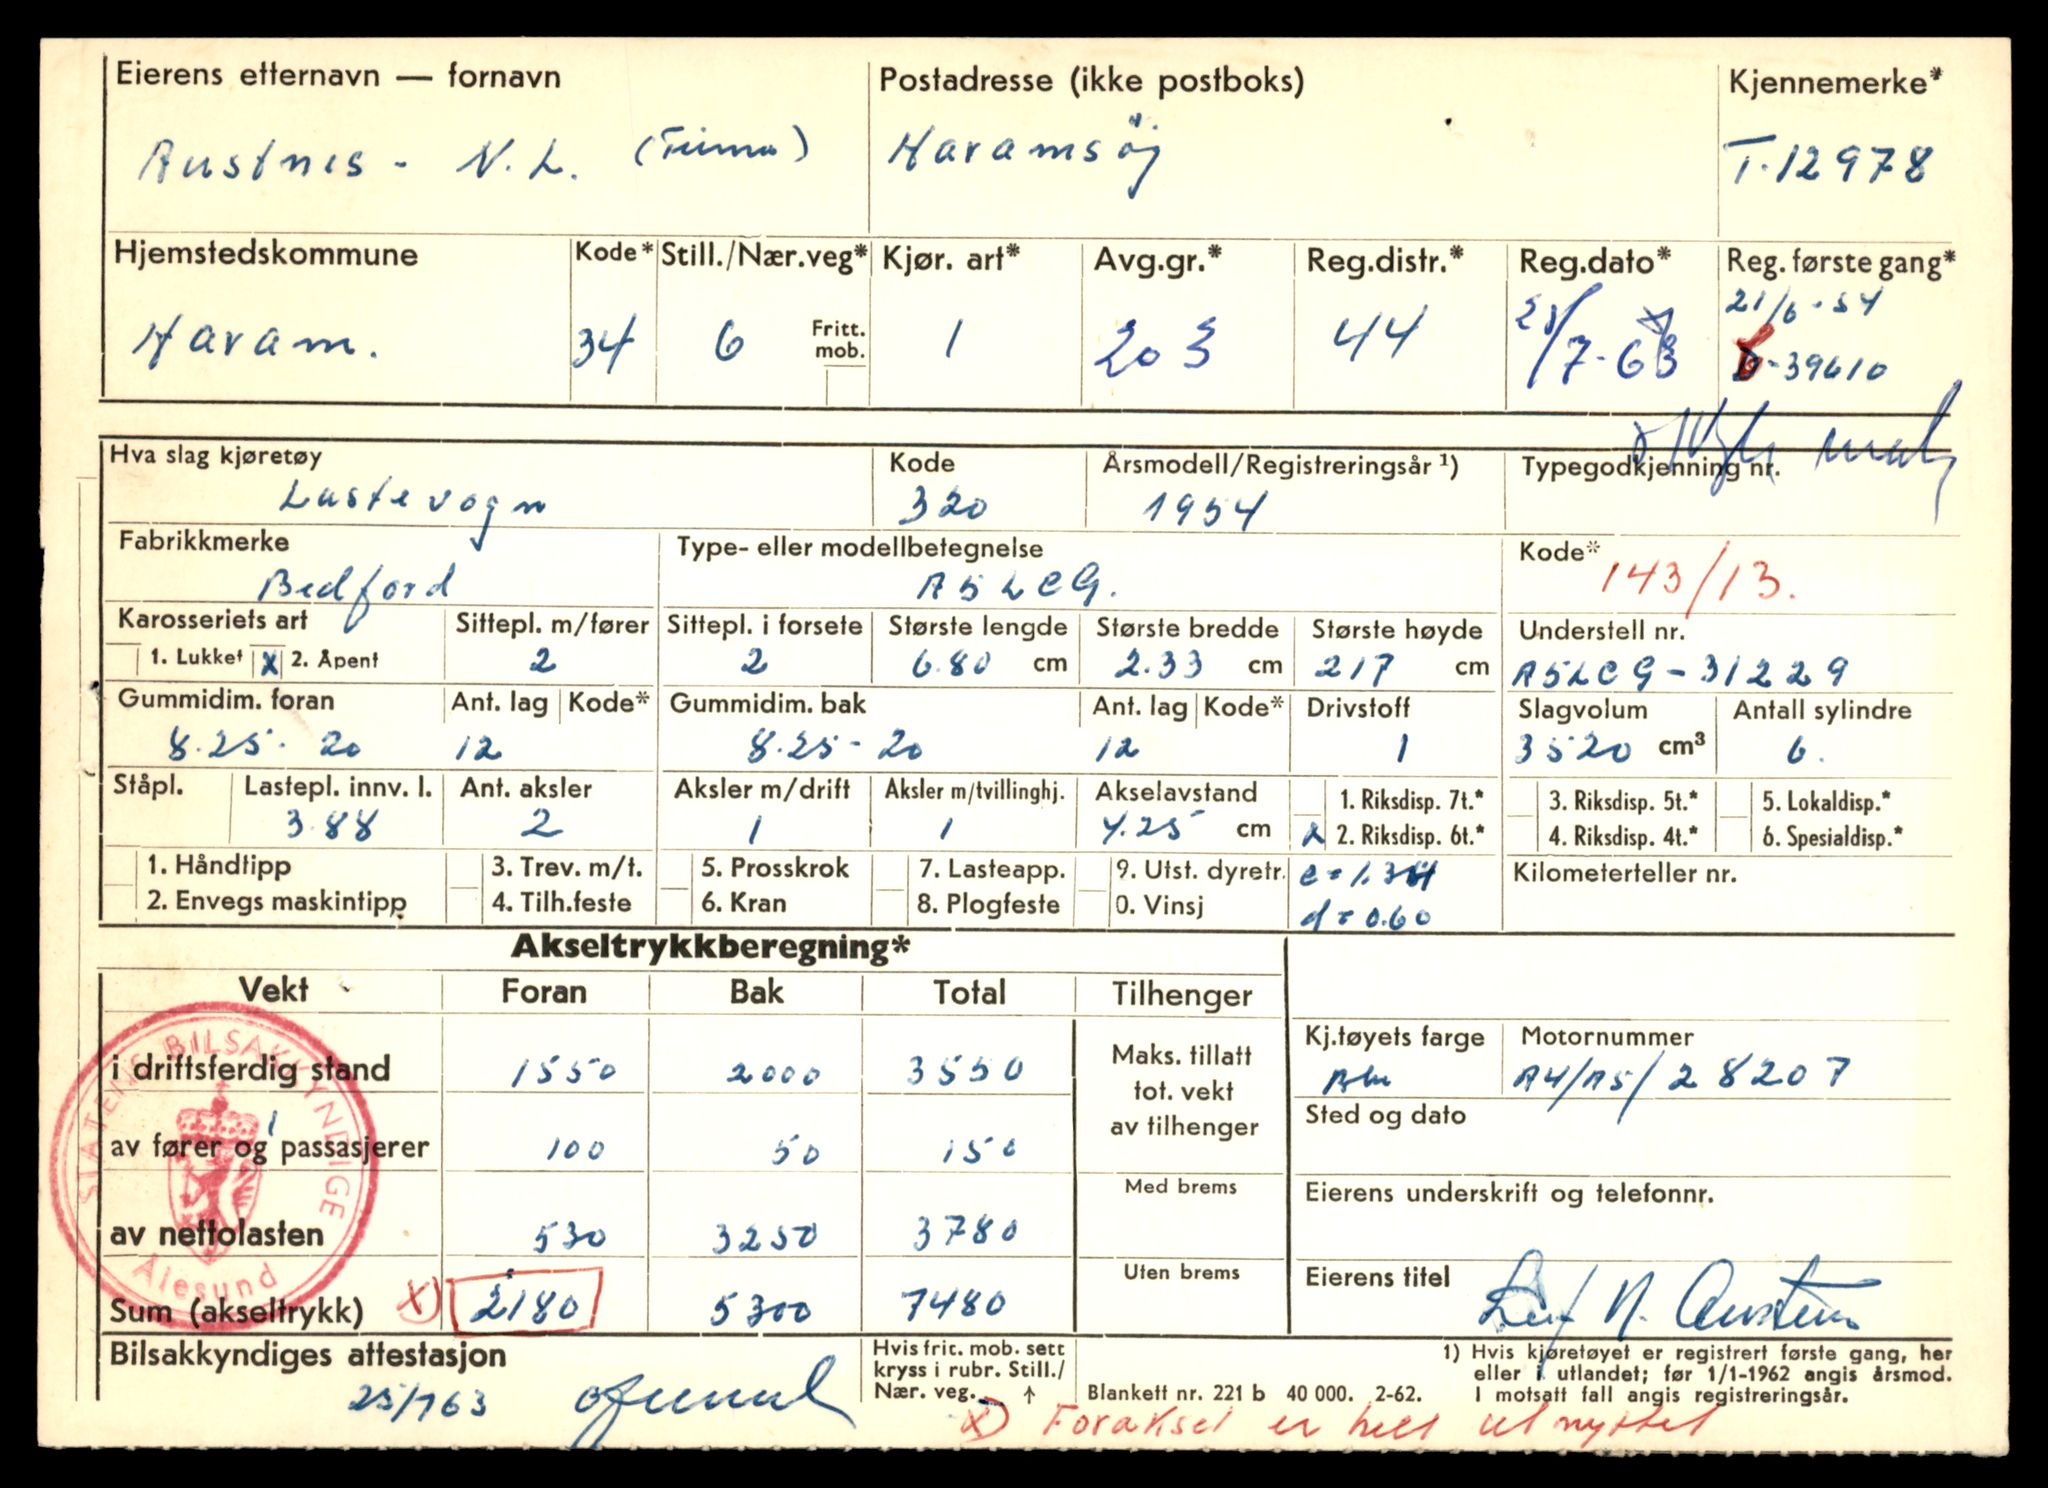 Eierens etternavn — fornavn Postadresse (ikke postboks) Kjennemerke*
Austnes - N. L. (Firma) Haramsöy T-12978
Hjemstedskommune Kode* Still./Nær.veg* Kjør. art* Avg.gr.* Reg.distr.* Reg.dato* Reg. første gang*
Haram. 34 6 Fritt. mob. 1 203 44 25/7-63 21/6-54
-39610
Hva slag kjøretøy Kode Årsmodell/Registreringsår ¹) Typegodkjenning nr.
Lastevogn 320 1954
Fabrikkmerke Type- eller modellbetegnelse Kode*
Bedford A5LCG. 143/13.
Karosseriets art Sittepl. m/fører Sittepl. i forsete Største lengde Største bredde Største høyde Understell nr.
1. Lukket x 2. Åpent 2 2 6.80 cm 2.33 cm 217 cm A5LCG-31229
Gummidim. foran Ant. lag Kode* Gummidim. bak Ant. lag Kode* Drivstoff Slagvolum Antall sylindre
8.25-20 12 8.25-20 12 1 3520 cm³ 6.
Ståpl. Lastepl. innv. l. Ant. aksler Aksler m/drift Aksler m/tvillinghj. Akselavstand 1. Riksdisp. 7t.* 3. Riksdisp. 5t.* 5. Lokaldisp.*
3.88 2 1 1 4.25 cm x 2. Riksdisp. 6t.* 4. Riksdisp. 4t.* 6. Spesialdisp.*
1. Håndtipp 3. Trev. m/t. 5. Prosskrok 7. Lasteapp. 9. Utst. dyretr. c = 1.34 Kilometerteller nr.
2. Envegs maskintipp 4. Tilh.feste 6. Kran 8. Plogfeste 0. Vinsj d = 0.60
Akseltrykkberegning*
Vekt Foran Bak Total Tilhenger
i driftsferdig stand 1550 2000 3550 Maks. tillatt tot. vekt av tilhenger
Kj.tøyets farge Motornummer
Blå A4/A5/28207
Sted og dato
av fører og 1 passasjerer 100 50 150
Med brems
Eierens underskrift og telefonnr.
av nettolasten 530 3250 3780
Uten brems
Eierens titel
Leif N. Austnes
Sum (akseltrykk) x) 2180 5300 7480
STATENS BILSAKKYNDIGE
Ålesund
Bilsakkyndiges attestasjon
25/7 63
Hvis frit. mob. sett
kryss i rubr. Still./
Nær. veg. ↑
Blankett nr. 221 b 40 000. 2-62.
1) Hvis kjøretøyet er registrert første gang, her
eller i utlandet; før 1/1-1962 angis årsmod.
I motsatt fall angis registreringsår.
x) Foraksel er helt utnyttet